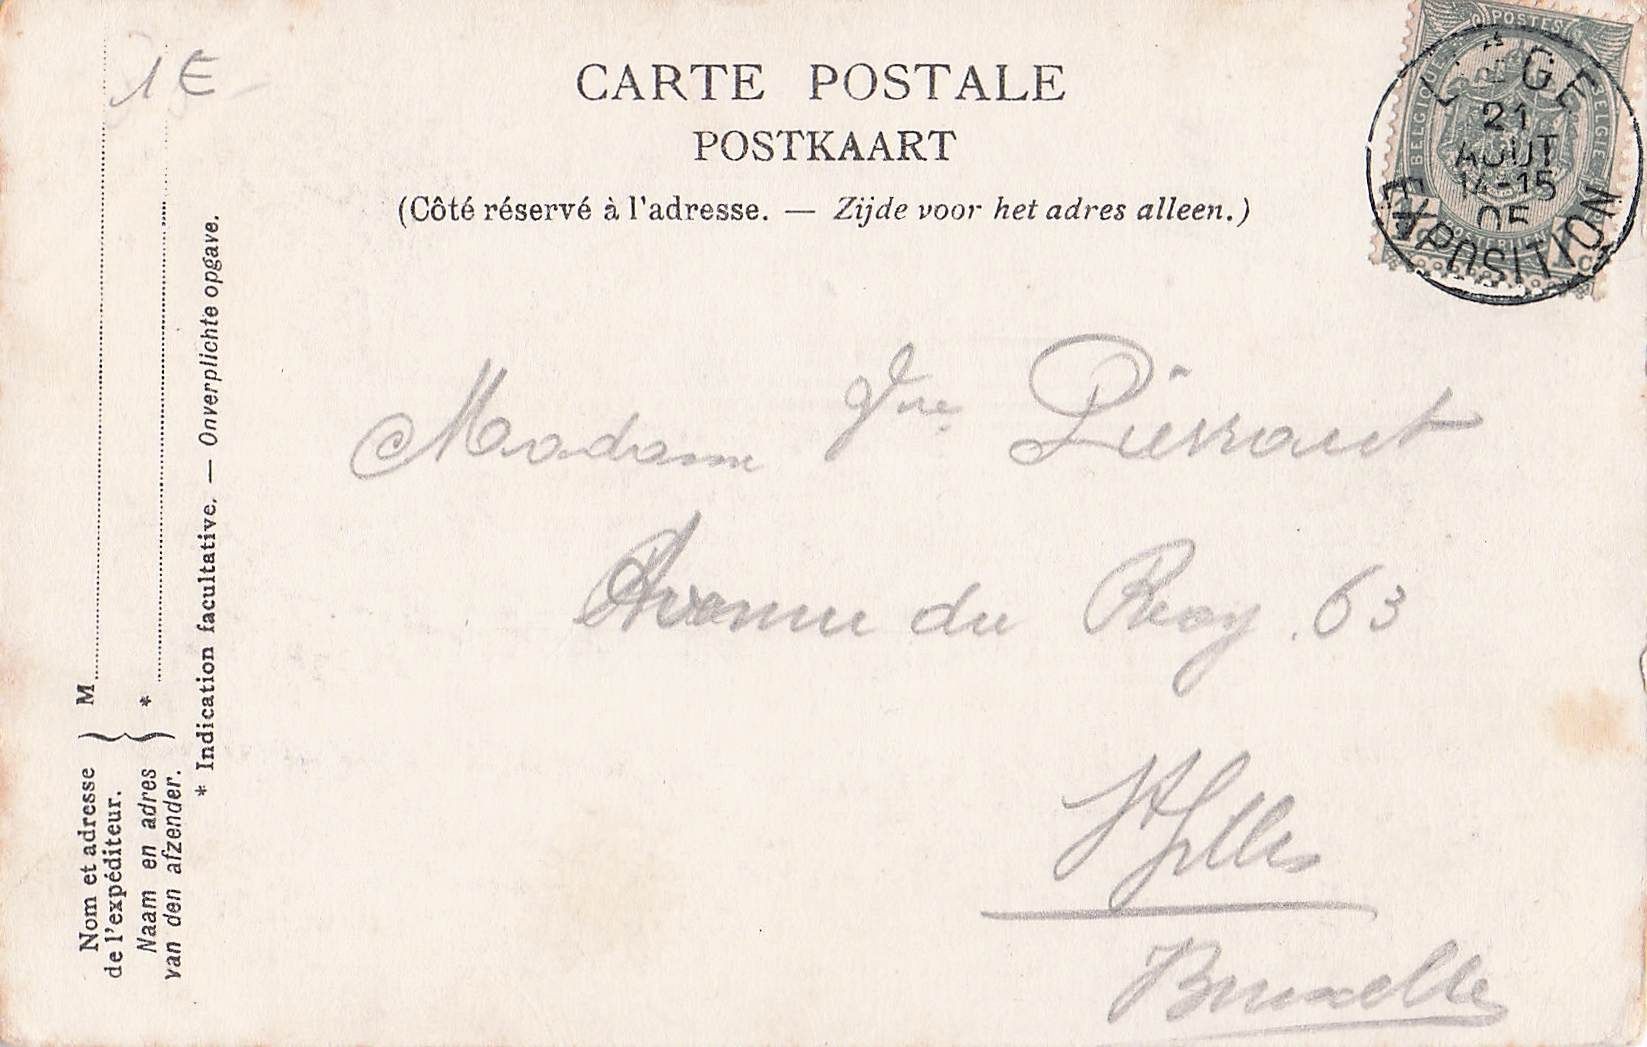 1 €
CARTE POSTALE
POSTKAART
(Côté réservé à l'adresse. — Zijde voor het adres alleen.)
POSTES
BELGIQUE
BELGIE
LIÈGE
21
AOUT
14-15
05
EXPOSITION
Madame Vve Pierrard
Avenue du Roy. 63
St Gilles
Bruxelles
Nom et adresse
de l'expéditeur.
M
Naam en adres
van den afzender.
*
* Indication facultative. — Onverplichte opgave.